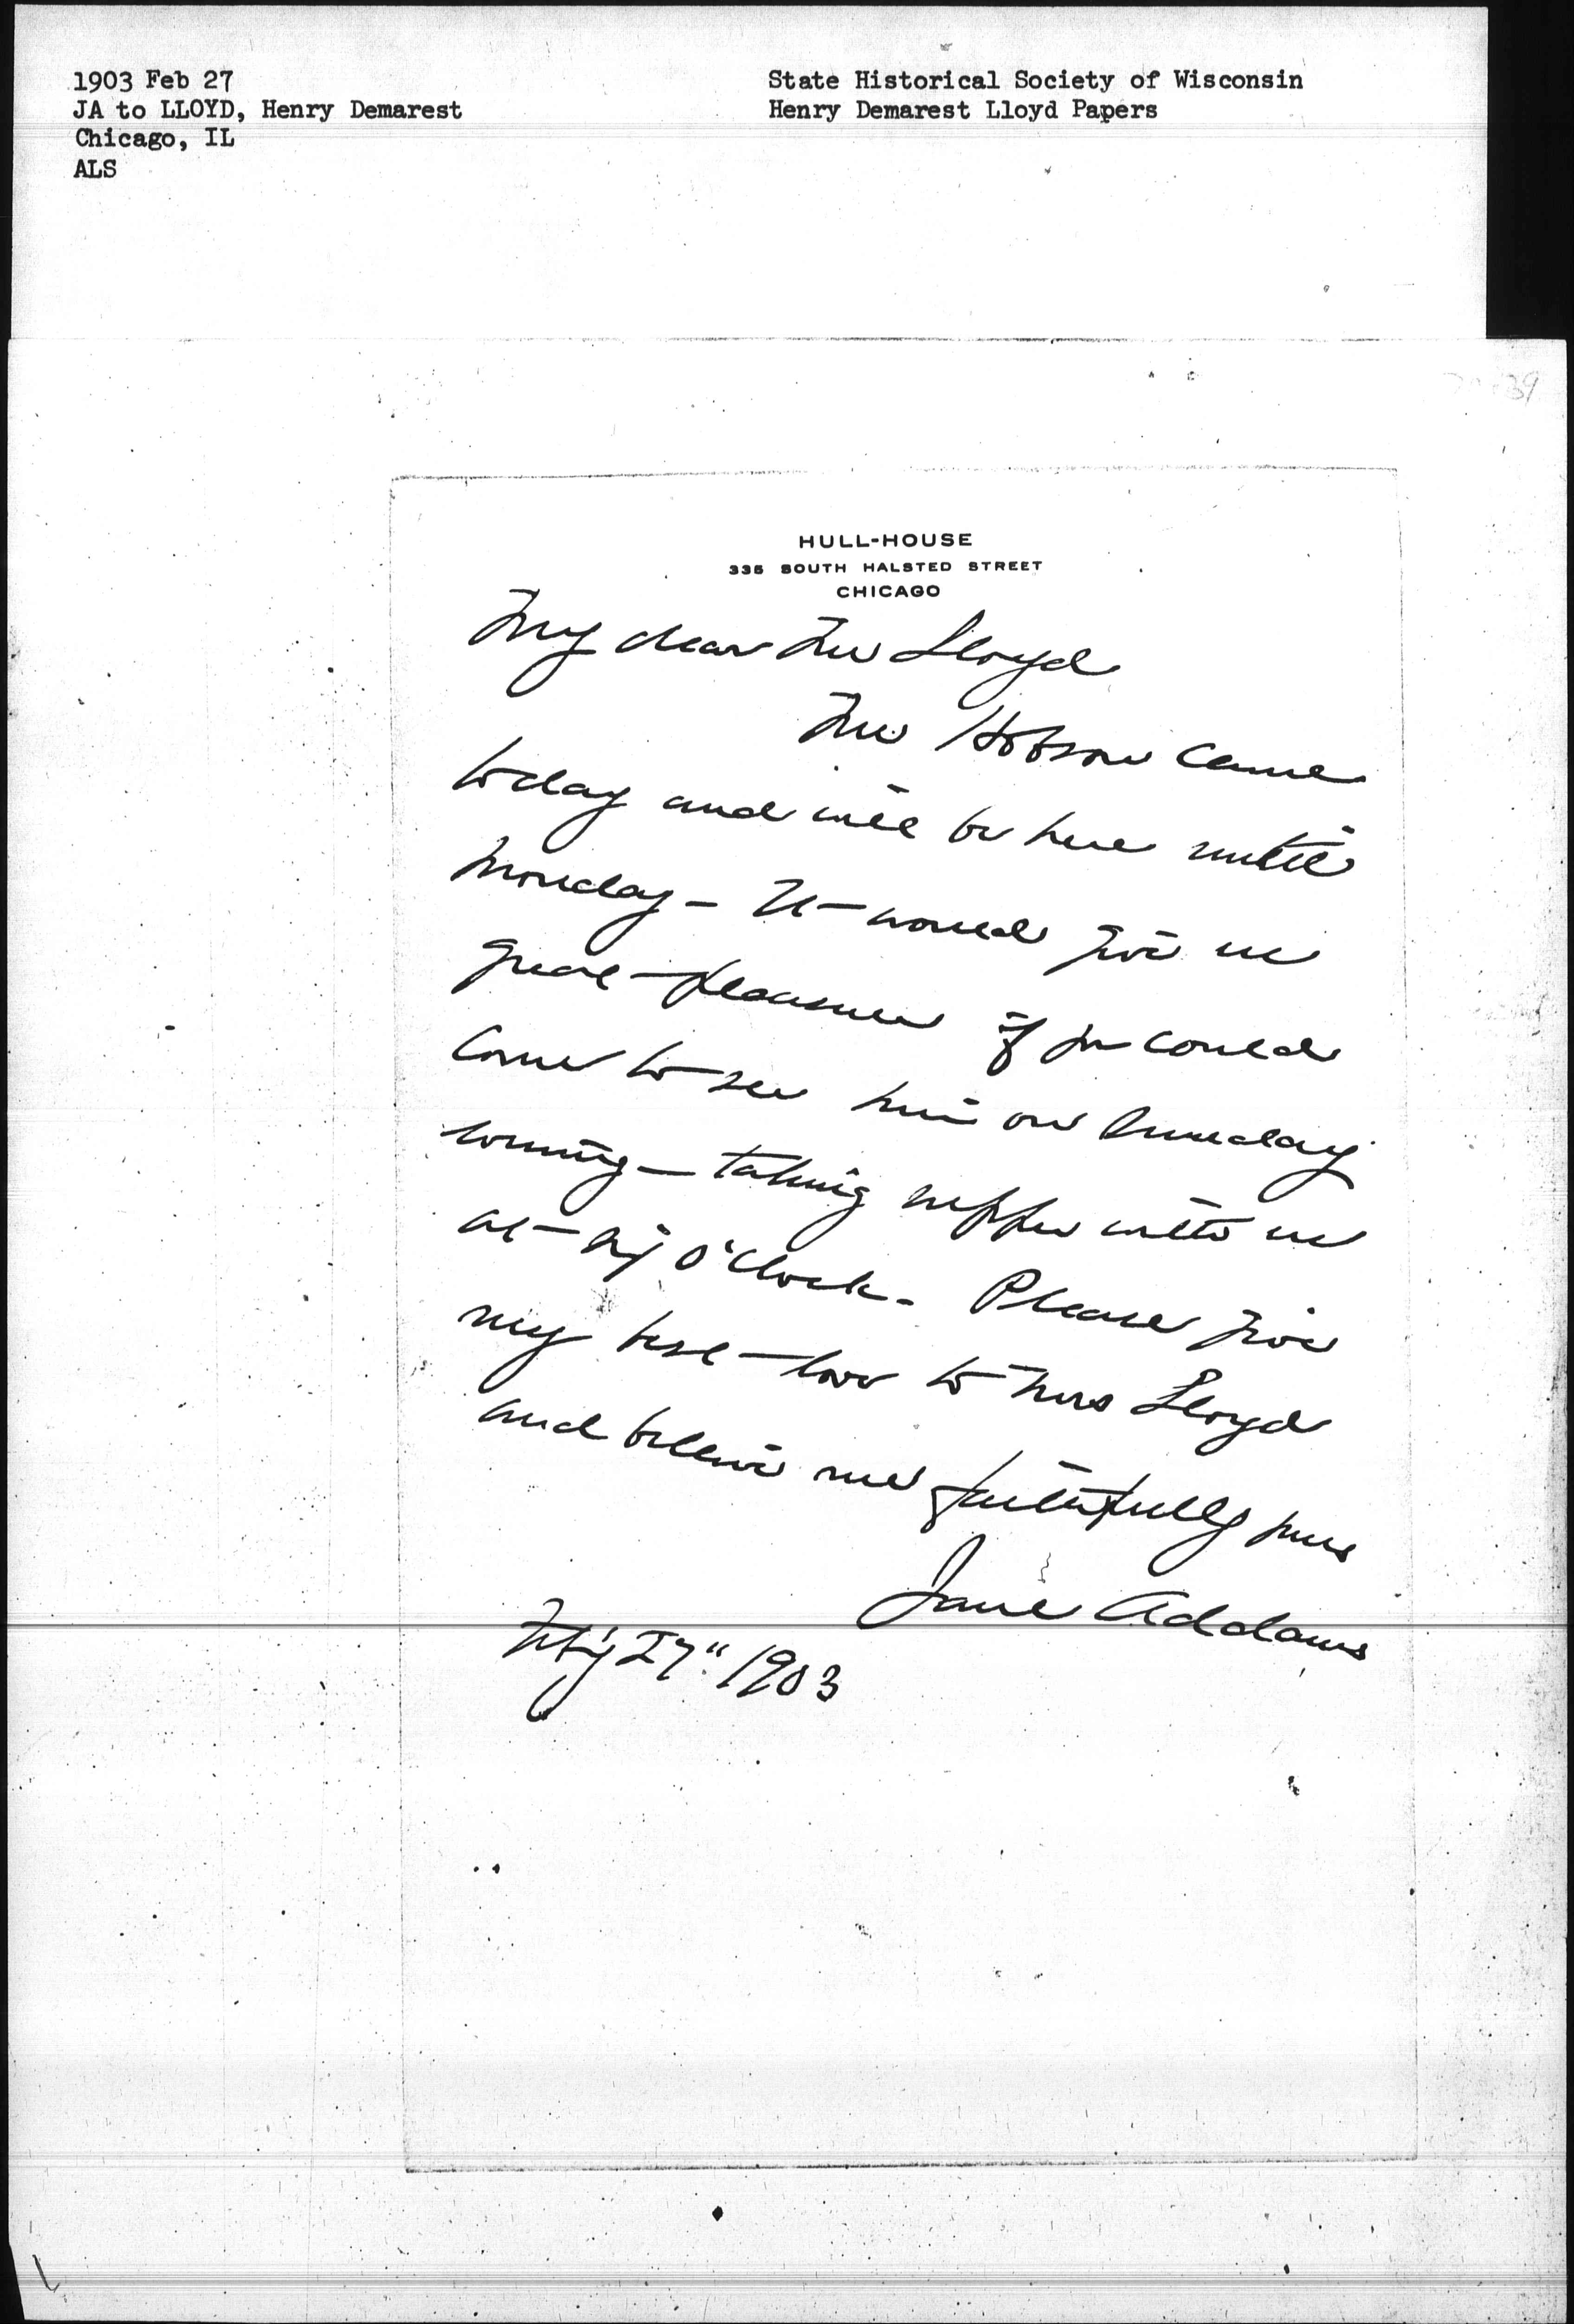 1903 Feb 27
JA to LLOYD, Henry Demarest
Chicago, IL
ALS
State Historical Society of Wisconsin
Henry Demarest Lloyd Papers
HULL-HOUSE
335 SOUTH HALSTED STREET
CHICAGO
My dear Mr Lloyd
Mr Hobson came
today and will be here until
Monday - It would give us
great pleasure if you could
come to see him on Sunday
evening - taking supper with us
at six o'clock - Please give
my best love to Mrs Lloyd
and believe me faithfully yours
Jane Addams
Feb'y 27" 1903